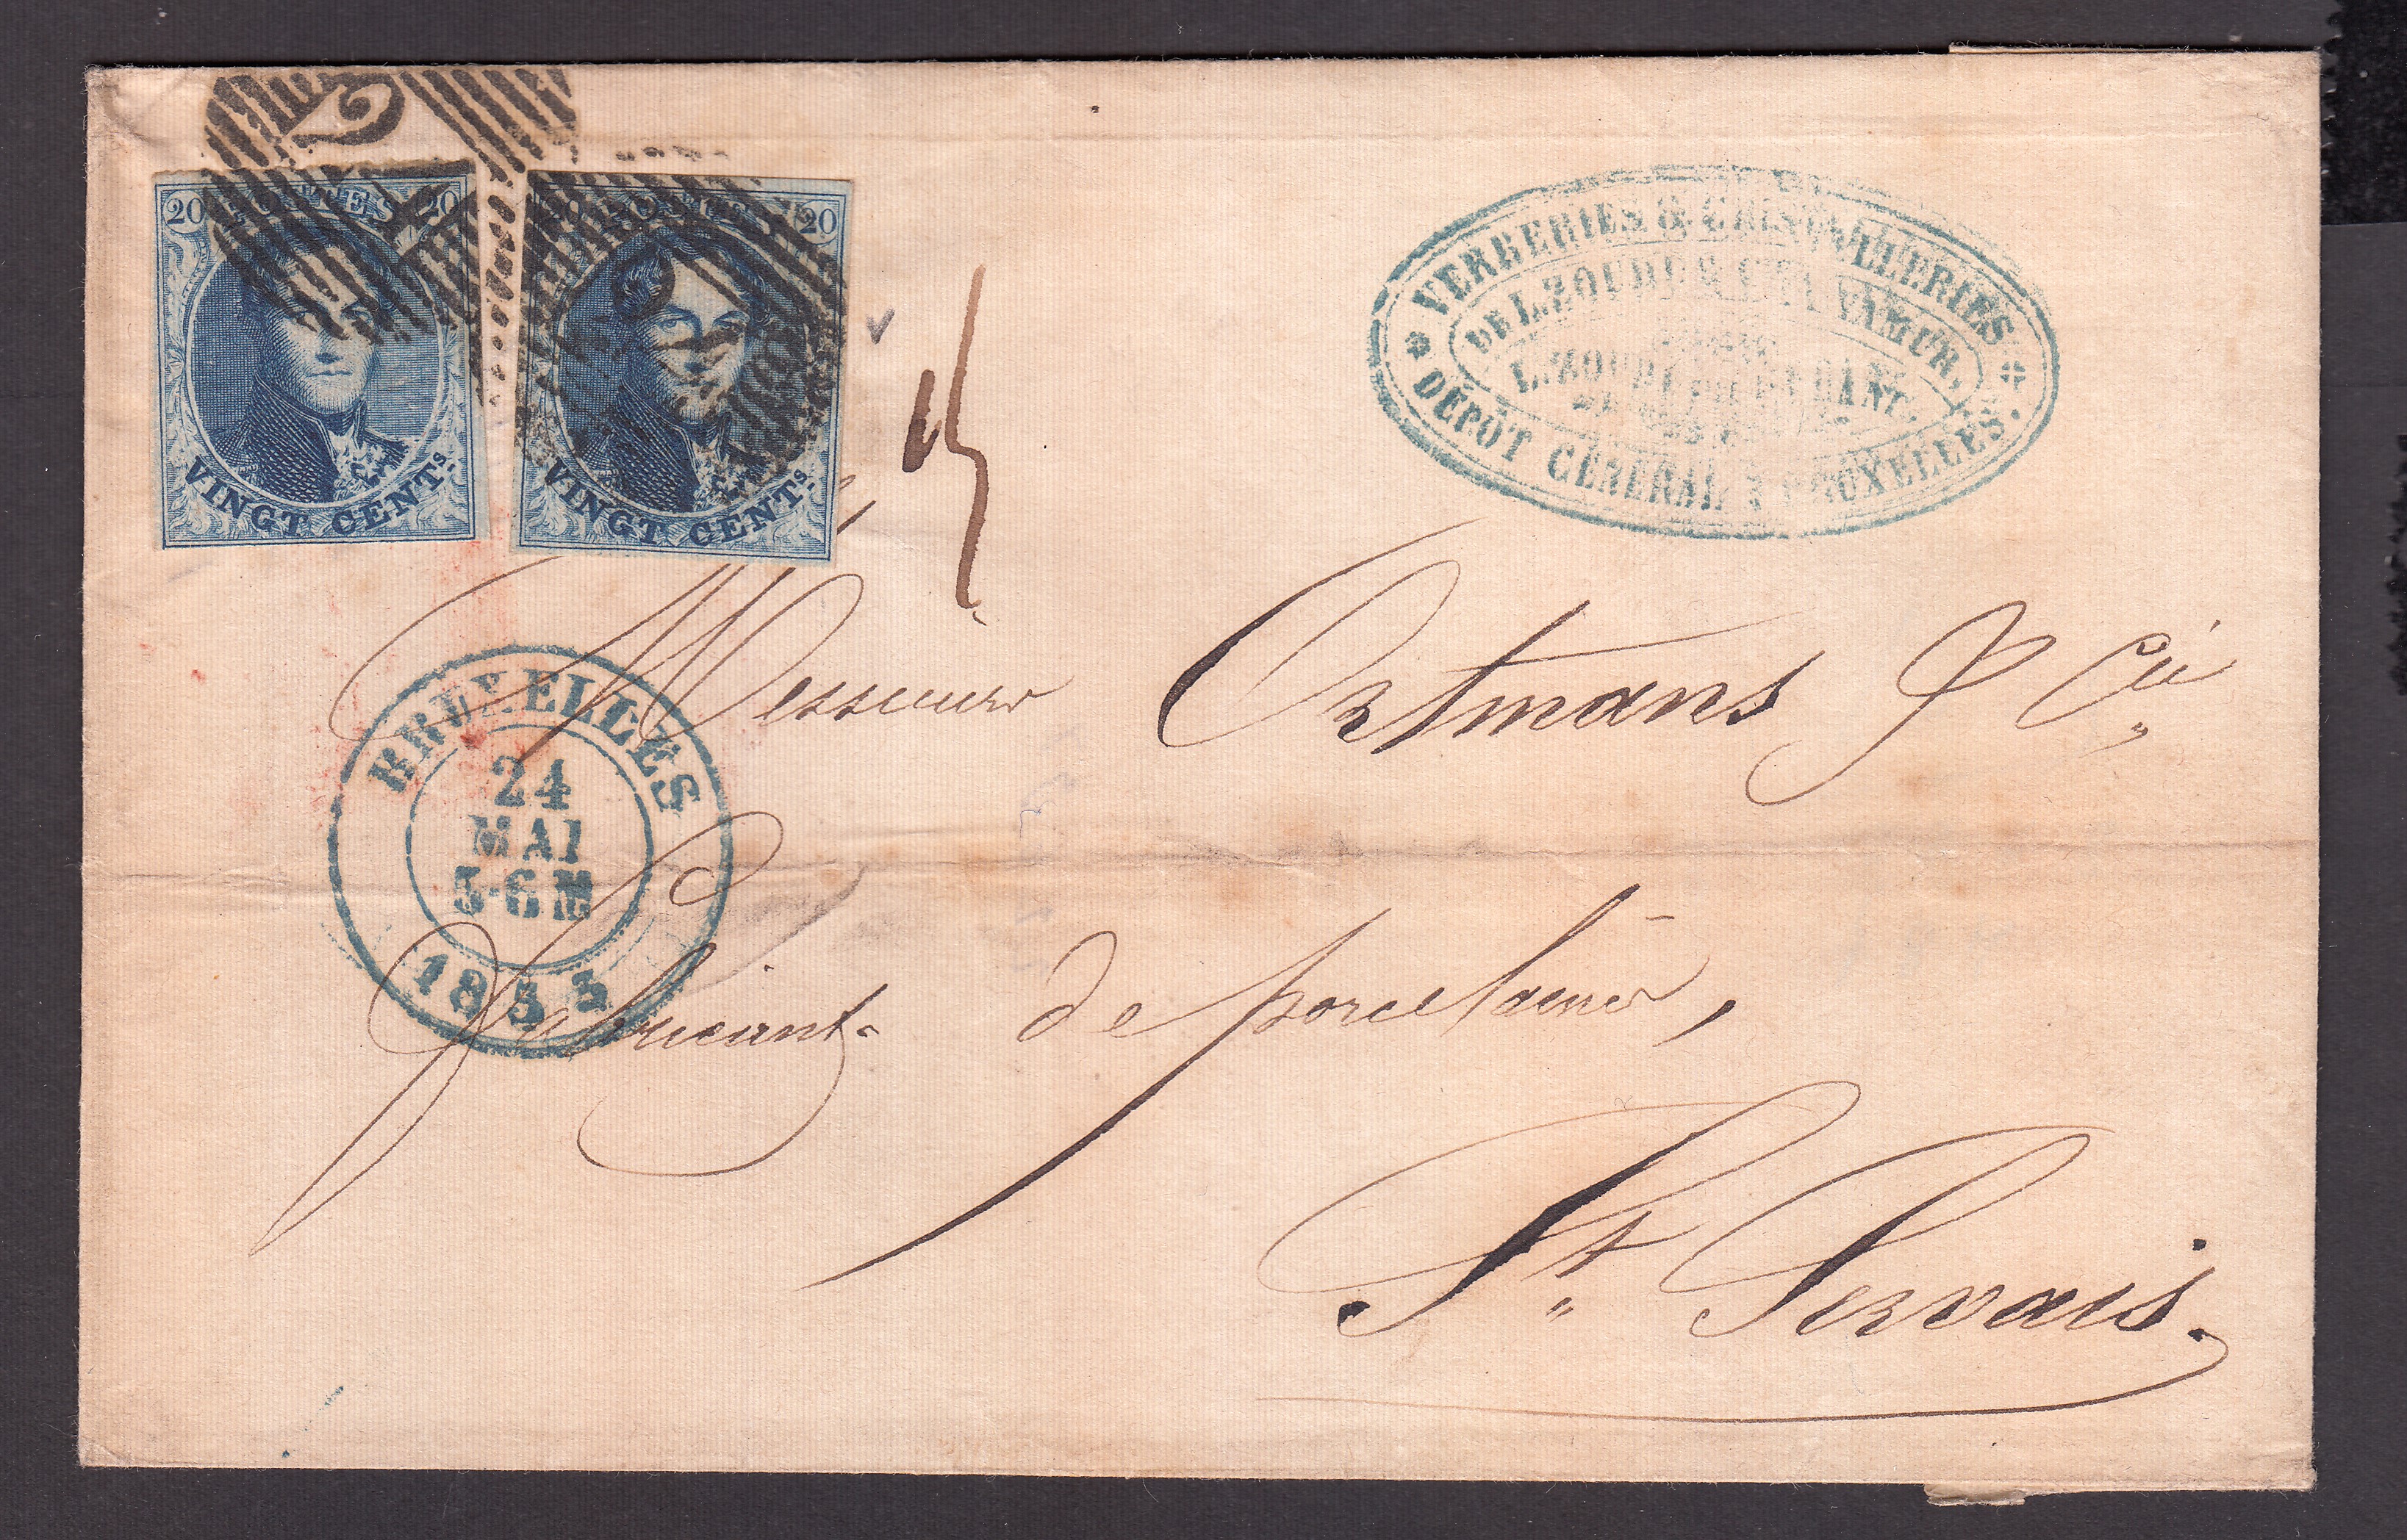 20 POSTES 20
VINGT CENTS.
20 POSTES 20
VINGT CENTS.
VERRERIES & CRISTALLERIES
DE L. ZOUDE & CIE NAMUR,
L. ZOUDE
DÉPÔT GÉNÉRAL À BRUXELLES.
Messieurs Ortmans & Cie
BRUXELLES
24
MAI
5-6 M
1853
fabricant de porcelaines,
St. Servais.